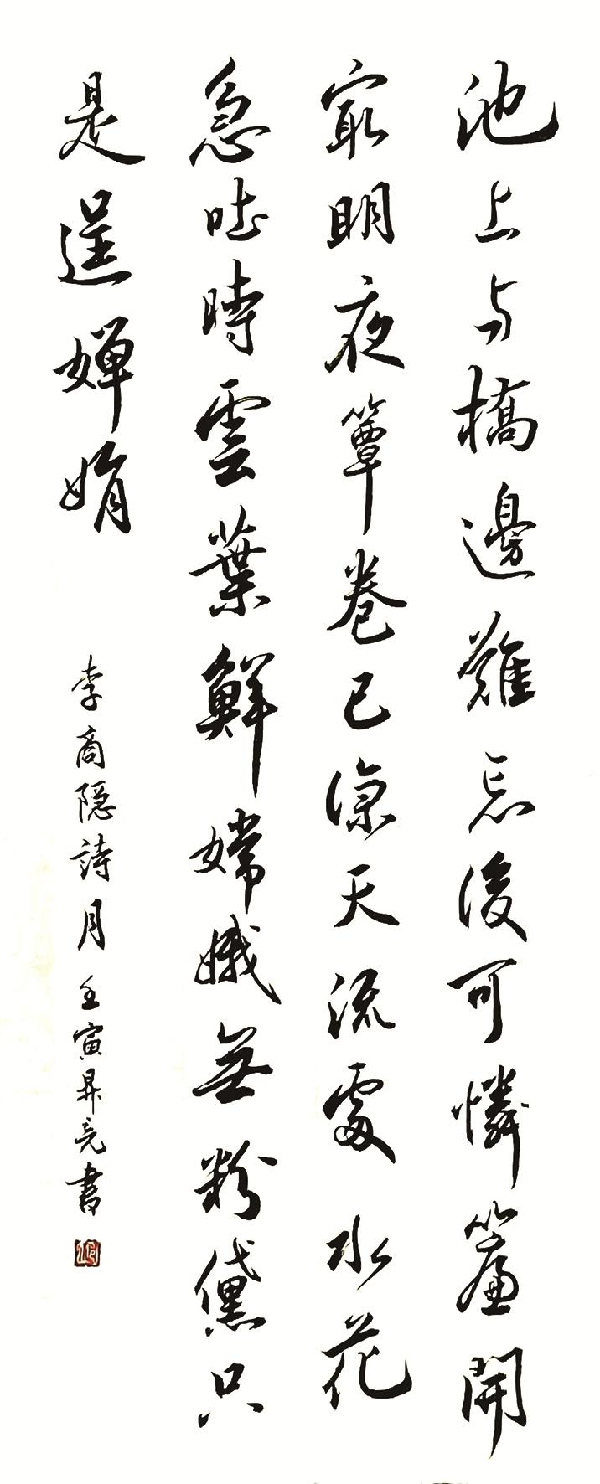 池上与橋邊難忘復可憐簾開
最明夜簟卷已涼天流處水花
急吐時雲葉鮮嫦娥無粉黛只
是逞嬋娟
李商隱詩月 壬寅昇亮書